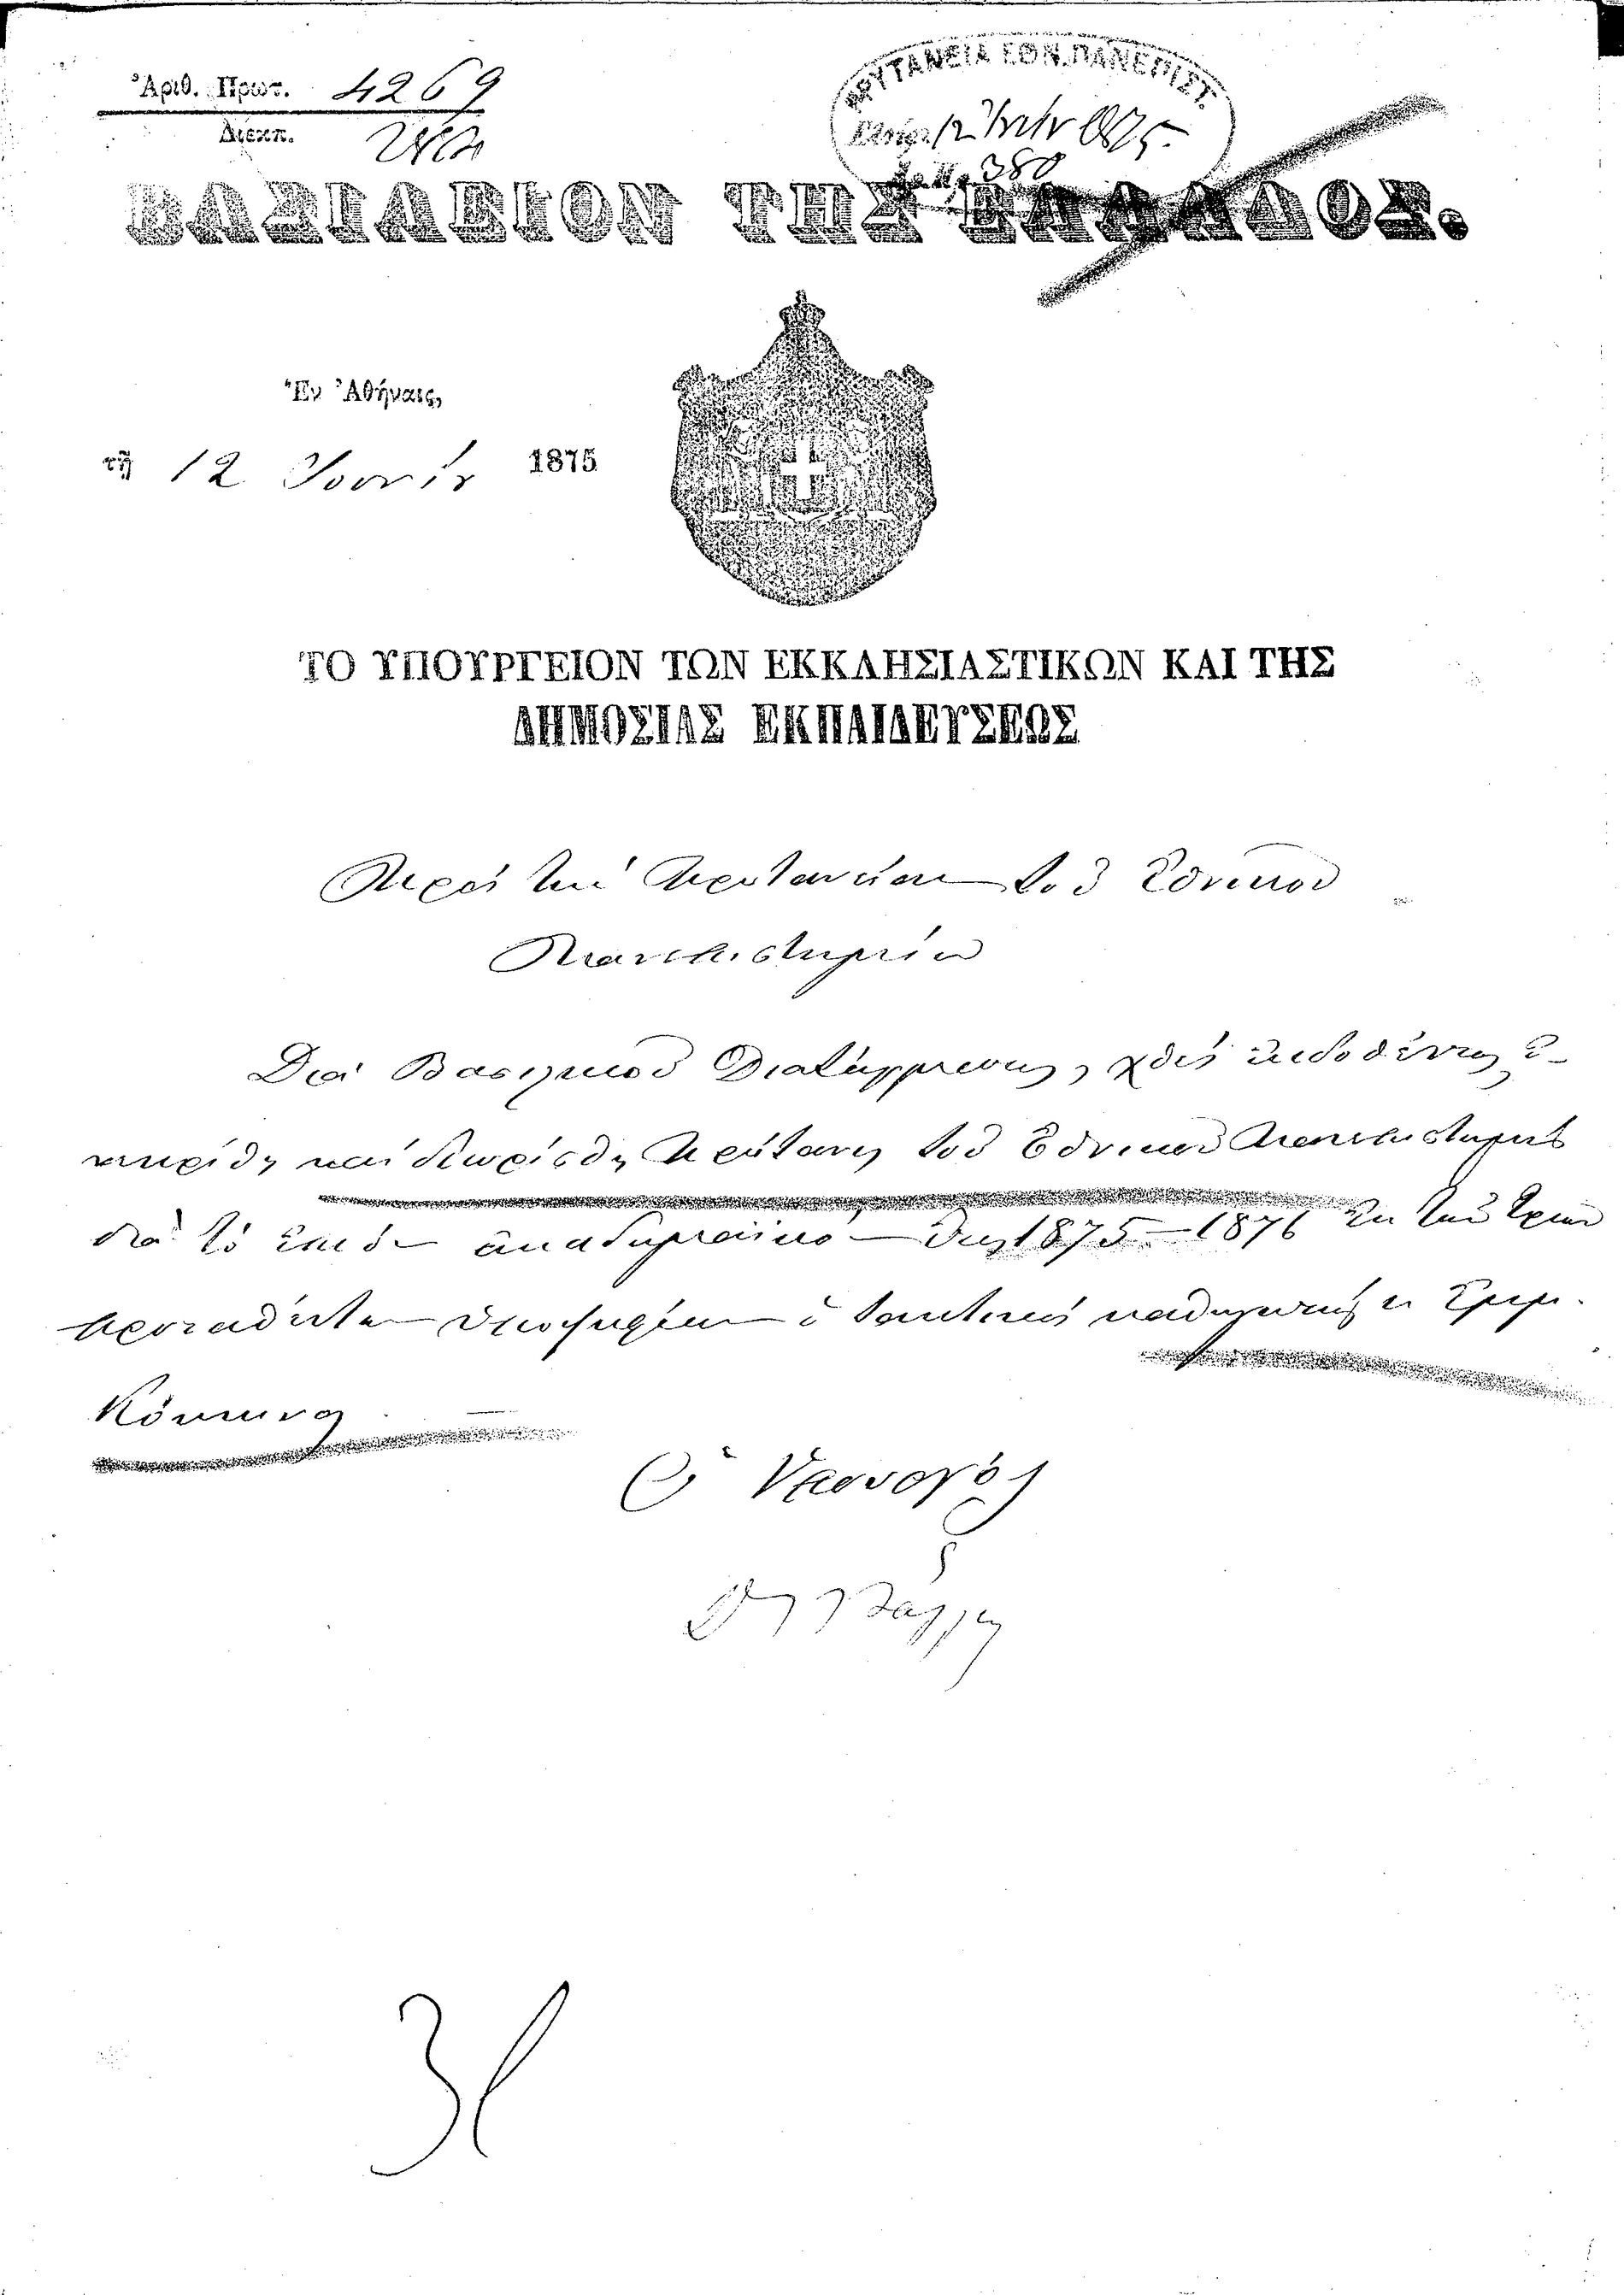 Ἀριθ. Πρωτ. 4269
Διεκπ.
ΠΡΥΤΑΝΕΙΑ ΕΘΝ. ΠΑΝΕΠΙΣΤ.
12
380
ΒΑΣΙΛΕΙΟΝ ΤΗΣ ΕΛΛΑΔΟΣ.
Ἐν Ἀθήναις,
τῇ 12 Ἰουνίου 1875
ΤΟ ΥΠΟΥΡΓΕΙΟΝ ΤΩΝ ΕΚΚΛΗΣΙΑΣΤΙΚΩΝ ΚΑΙ ΤΗΣ
ΔΗΜΟΣΙΑΣ ΕΚΠΑΙΔΕΥΣΕΩΣ
Πρὸς τὴν Πρυτανείαν τοῦ Ἐθνικοῦ
Πανεπιστημίου
Διὰ Βασιλικοῦ Διατάγματος, χθὲς ἐκδοθέντος ἐ-
νεκρίθη καὶ διωρίσθη Πρύτανις τοῦ Ἐθνικοῦ Πανεπιστημίου
διὰ τὸ ἐπιὸν ἀκαδημαϊκὸν ἔτος 1875-1876
ὁ τακτικὸς καθηγητὴς
Κόκκινος
Ὁ Ὑπουργὸς